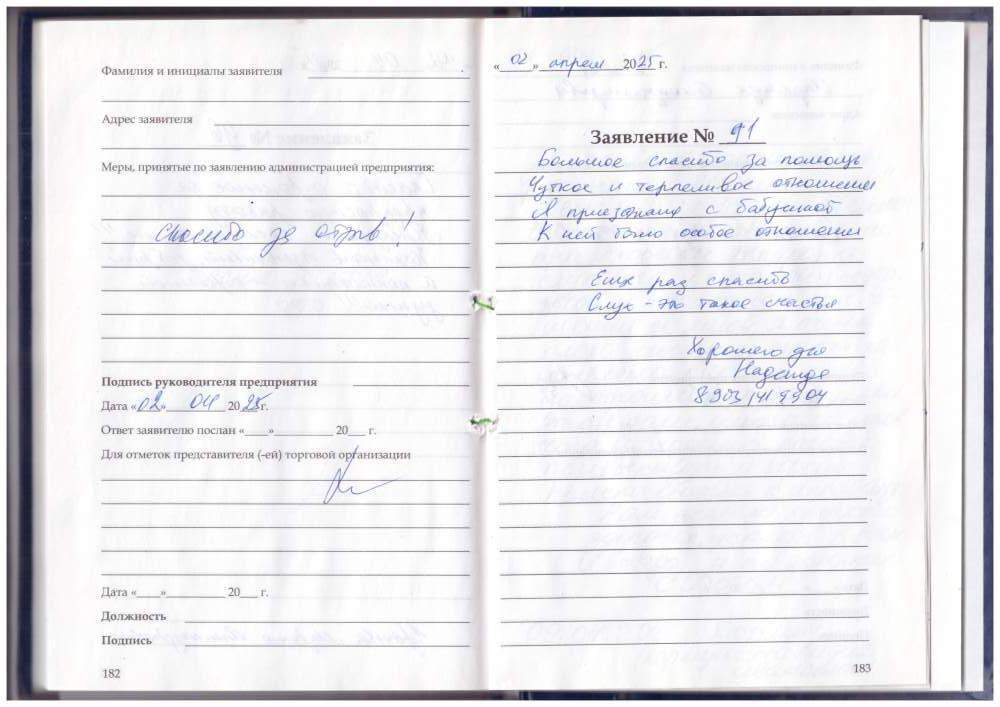 Фамилия и инициалы заявителя
Адрес заявителя
Меры, принятые по заявлению администрацией предприятия:
Спасибо за отзыв!
Подпись руководителя предприятия
Дата «02» 04 2025 г.
Ответ заявителю послан «___»__________ 20___ г.
Для отметок представителя (-ей) торговой организации
Дата «____»__________ 20___ г.
Должность
Подпись
182
«02» апреля 2025 г.
Заявление № 91
Большое спасибо за помощь
Чуткое и терпеливое отношение
Я приезжала с бабушкой
К ней было особое отношение
Еще раз спасибо
Слух - это такое счастье
Хорошего дня
Надежда
183